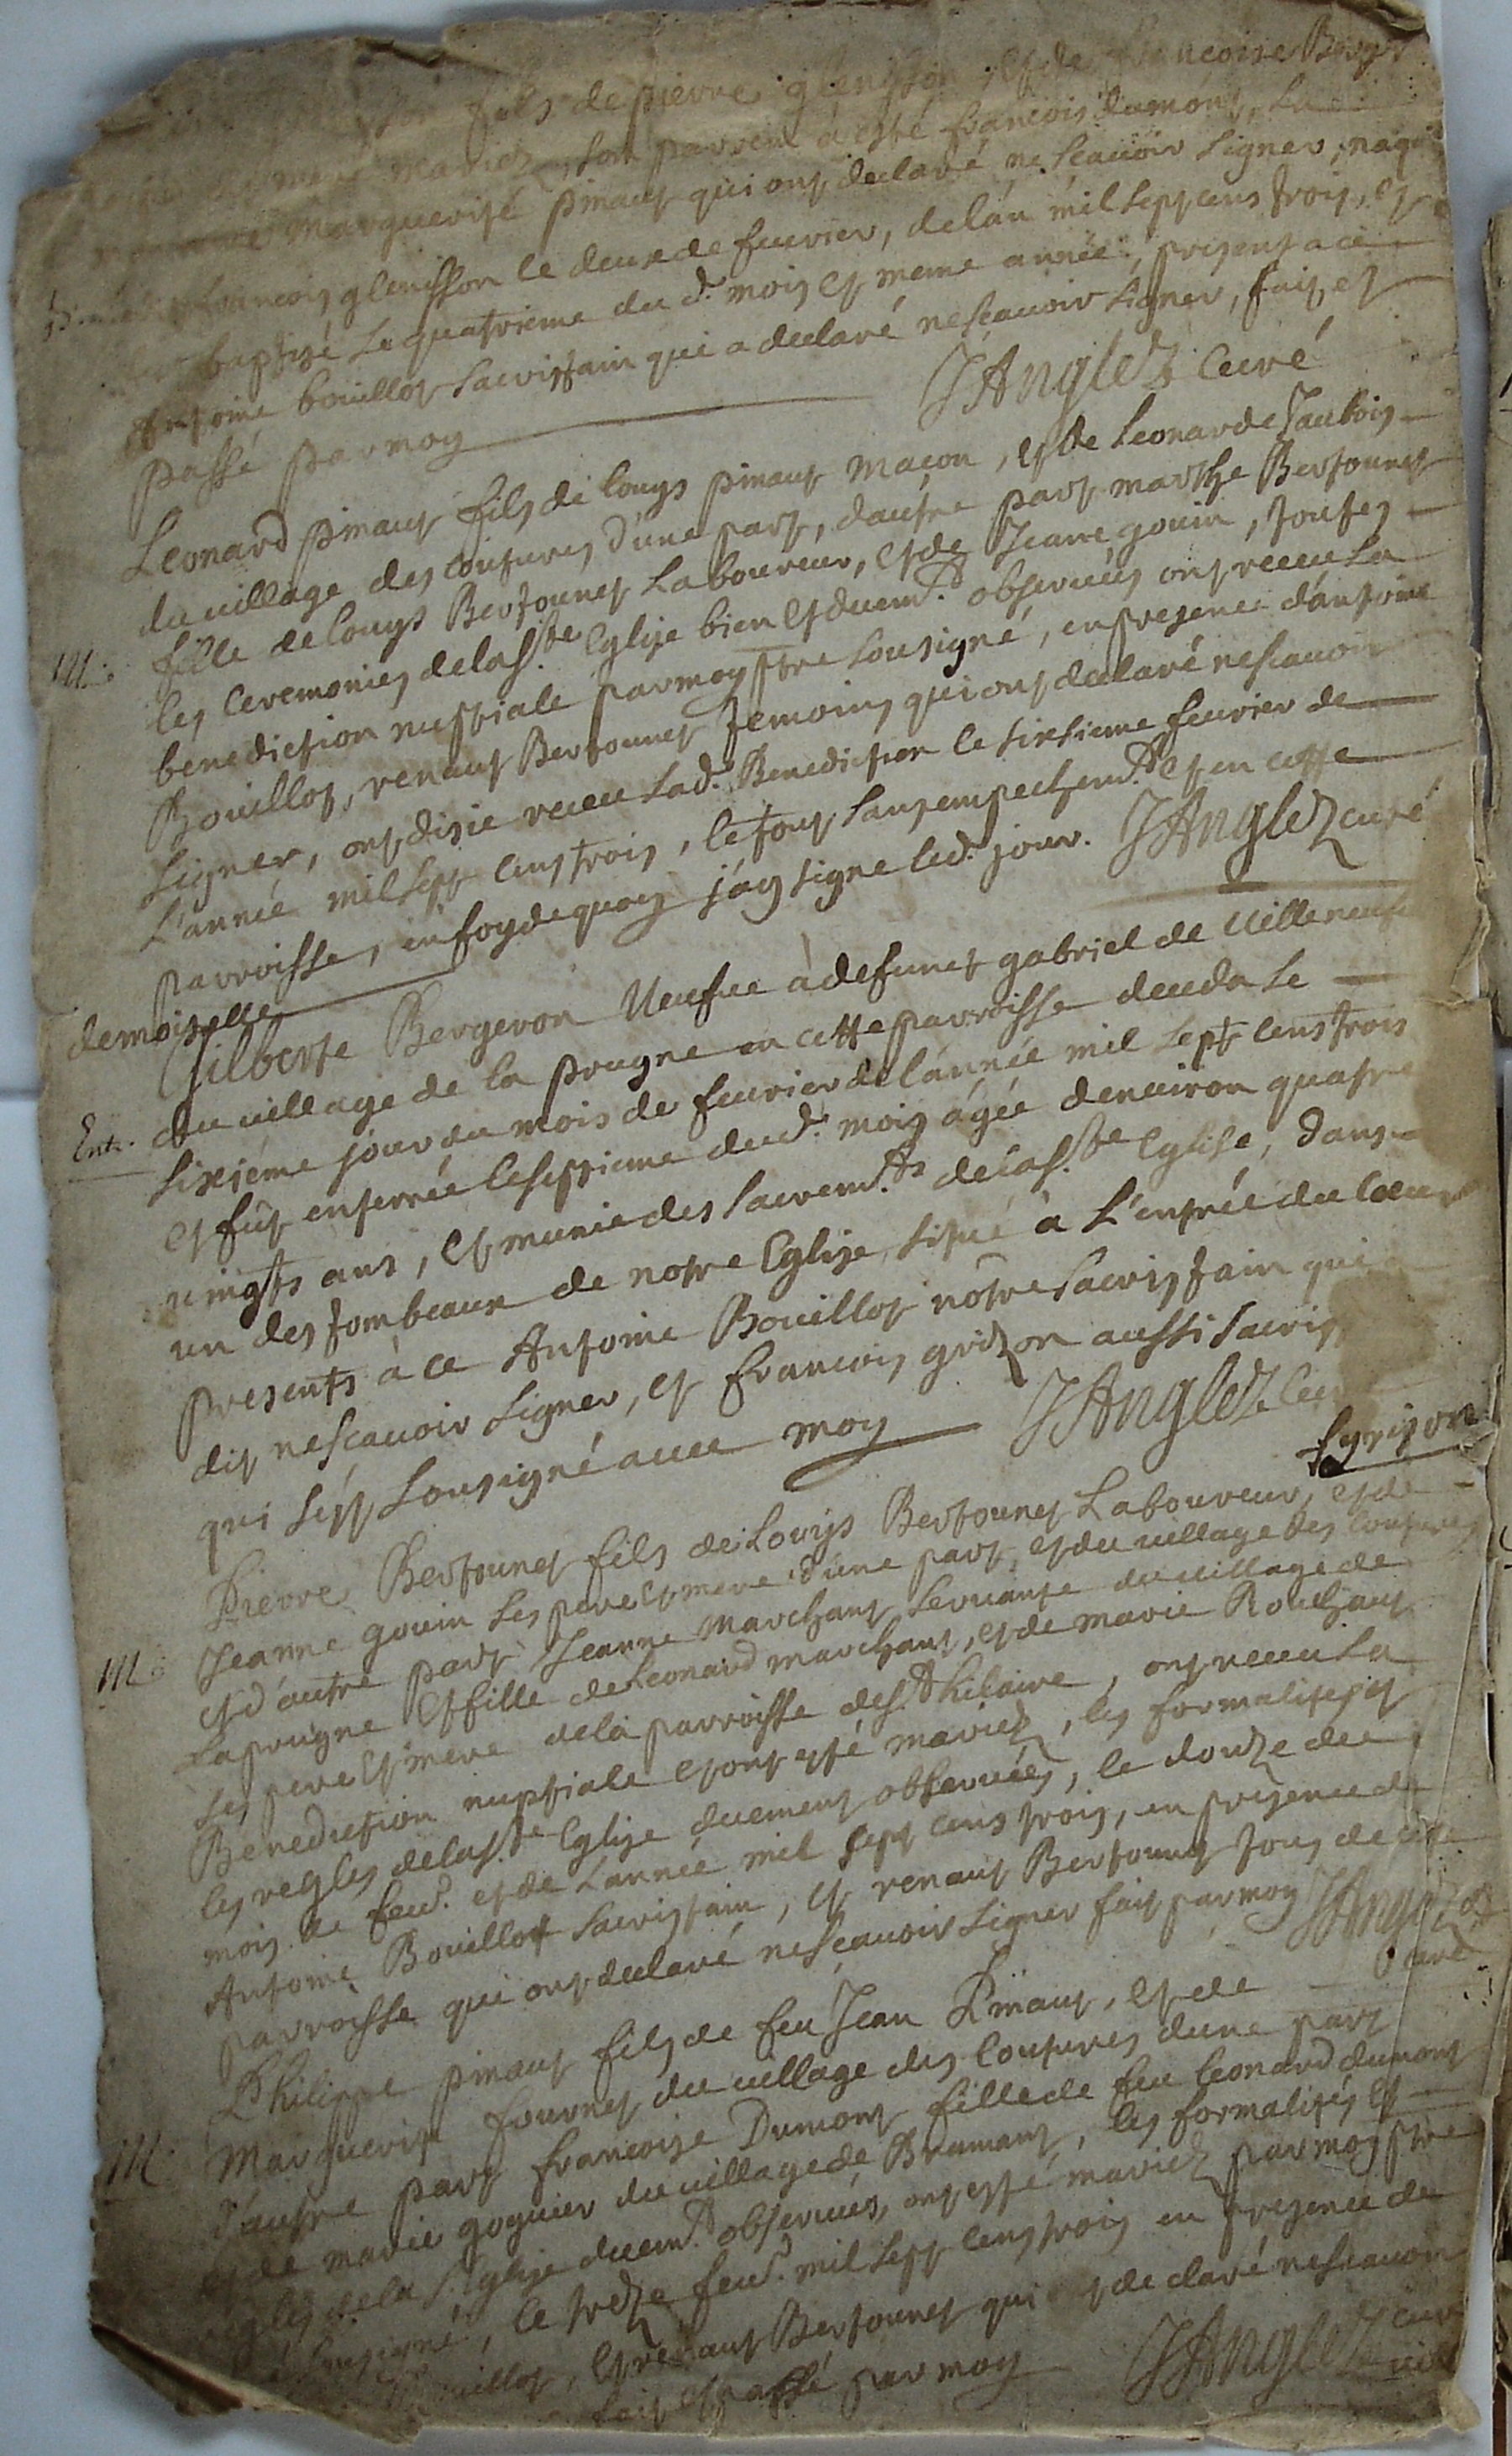 fils de pierre glenisson, et de francoise Berge
mariez, son parrein a esté francois dumont, La
marguerite pinaut qui ont declaré ne scauoir signer, naquit
francois glenisson le deux de feurier, de lan mil sept cens trois, et
baptisé le quatrieme du d. mois et meme année, present a ce
Antoine bouillot sacristain qui a declaré ne scauoir signer, fait et
passé par moy JAnglez curé
Leonard pinaut fils de louys pinaut maçon, et de Leonarde Jaubois
du uillage des coutures d'une part, dautre part marthe Bertounet
fille de louys Bertounet Laboureur, et de Jeane gouin, toutes
M. les ceremonies de la s.te Eglise bien et duem.t obseruées ont receu la
benediction nuptiale par moy ptre sousigné, en presence dantoine
Bouillot, renaut Bertounet temoins qui ont declaré ne scauoir
signer, ont disie receu lad. Benediction le sixsieme feurier de
L'année mil sept cens trois, le tout sans empechem.t et en cette
parroisse, en foy de quoy j'ay signe led. jour. JAnglez curé
demoiselle
Gilberte Bergeron Ueufue à defunct gabriel de uilleneufue
Entr. du uillage de la prugne en cette parroisse deceda le
sixieme jour du mois de feurier de l'année mil sept cens trois
et fût enterrée le septieme du d. mois âgée d'enuiron quatre
uingts ans, et munie des sacrem.ts de la s.te Eglise, dans
un des tombeaux de notre Eglise, situé à L'entrée du Cœur
presents à ce Antoine Bouillot nôtre sacristain qui a
dit ne scauoir signer, et francois grizon aussi sacris
qui s'est sousigné auec moy JAnglez Curé
f grison
Pierre Bertounet fils de Louys Bertounet Laboureur, et de
Jeanne gouin ses pere et mere d'une part, et du uillage des coutures
M. et d'autre part Jeanne marchant seruante du uillage de
Laprugne et fille de Leonard marchant, et de marie Rouchaut
ses pere et mere de la parroisse de s.t hilaire, ont receu la
Benediction nuptiale et ont esté mariez, les formalites et
les regles de la s.te Eglise duement obseruées, le douze du
mois de feu.r et de l'année mil sept cens trois, en presence de
Antoine Bouillot sacristain, et renaut Bertounet tous de cette
parroisse qui ont declaré ne scauoir signer fait par moy JAnglez
curé
Philippe pinaut fils de feu Jean Pinaut, et de
Marguerite fournet du uillage des Coutures dune part
M. d'autre part francoise Dumont fille de feu Leonard dumont
et de marie goguier du uillage de Brumant, les formalités et
regles de la s. Eglise duem.t obseruées, ont esté mariez par moy ptre
sousigné, le treze feu.r mil sept cens trois en presence de
bouillot, et renaut Bertounet qui ont declaré ne scauoir
fait et passé par moy JAnglez curé